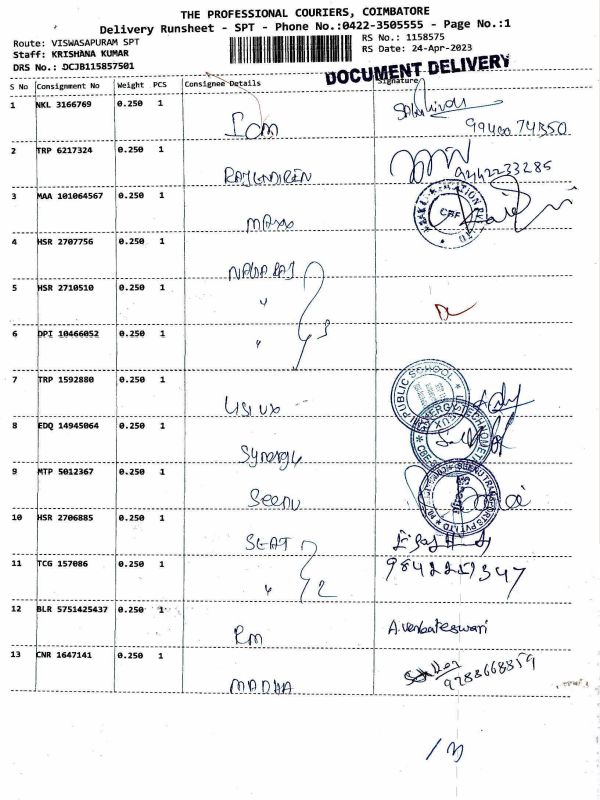 THE PROFESSIONAL COURIERS, COIMBATORE
Delivery Runsheet - SPT - Phone No.:0422-3505555 - Page No.:1
Route: VISWASAPURAM SPT RS No.: 1158575
Staff: KRISHANA KUMAR RS Date: 24-Apr-2023
DRS No.: DCJB115857501
DOCUMENT DELIVERY
S No Consignment No Weight PCS Consignee Details Signature
1 NKL 3166769 0.250 1
99400 74350
2 TRP 6217324 0.250 1
RAJENDIREN 9242233285
3 MAA 101064567 0.250 1
CBE
4 HSR 2707756 0.250 1
NAVARAJ
5 HSR 2710510 0.250 1
"
6 DPI 10466052 0.250 1
" 3
7 TRP 1592880 0.250 1
PUBLIC SCHOOL
8 EDQ 14945064 0.250 1
Synergy
9 MTP 5012367 0.250 1
Seenu
10 HSR 2706885 0.250 1
SEAT
11 TCG 157086 0.250 1
" 2
12 BLR 5751425437 0.250 1
RM A.venbateswari
13 CNR 1647141 0.250 1
MADHA 9283668859